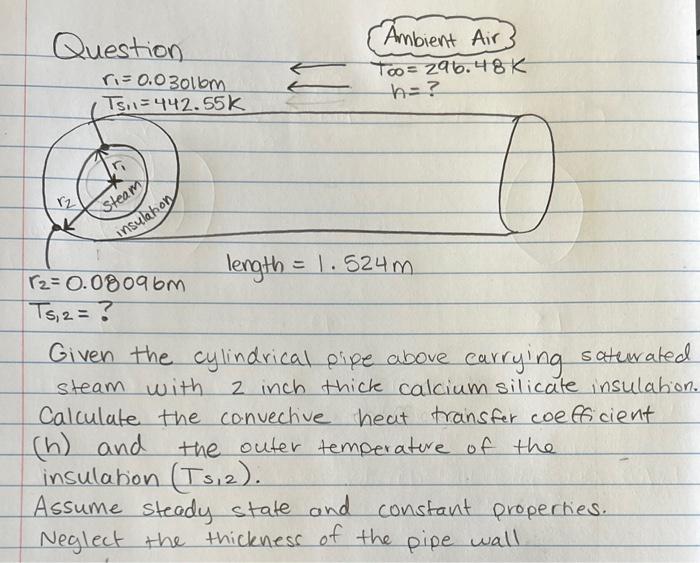 Question
Ambient Air
r₁ = 0.03016m
T∞ = 296.48K
Ts,1 = 442.55K
h = ?
r₁
steam
r₂
insulation
length = 1.524m
r₂ = 0.08096m
Ts,2 = ?
Given the cylindrical pipe above carrying saturated
steam with 2 inch thick calcium silicate insulation.
Calculate the convective heat transfer coefficient
(h) and the outer temperature of the
insulation (Ts,2).
Assume steady state and constant properties.
Neglect the thickness of the pipe wall